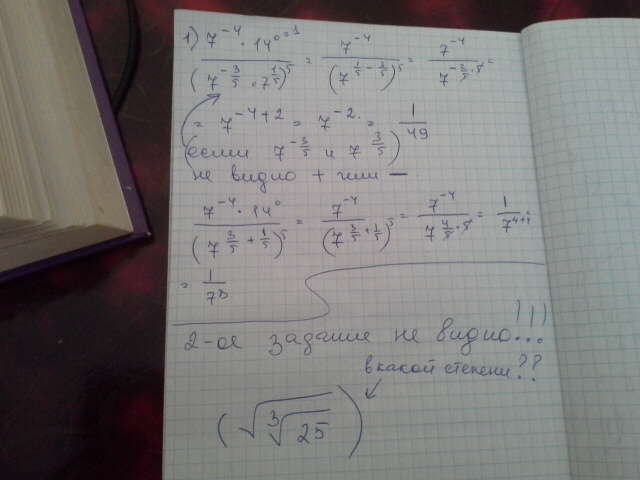 1) 7^{-4} · 14^{0=1} / (7^{-3/5} · 7^{1/5})^5 = 7^{-4} / (7^{1/5 - 3/5})^5 = 7^{-4} / 7^{-2/5 · 5} =
= 7^{-4+2} = 7^{-2} = 1/49
если 7^{-3/5} и 7^{3/5})
не видно + или —
7^{-4} · 14^0 / (7^{3/5 + 1/5})^5 = 7^{-4} / (7^{3/5 + 1/5})^5 = 7^{-4} / 7^{4/5 · 5} = 1 / 7^{4+4}
= 1 / 7^8
2-ое задание не видно...!!!
в какой степени??
(√∛25)